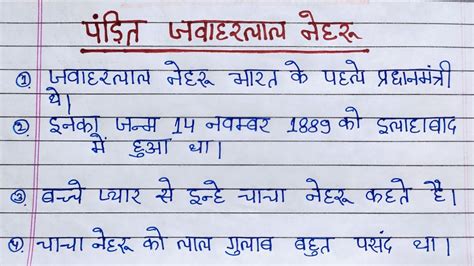 पंडित जवाहरलाल नेहरू
① जवाहरलाल नेहरू भारत के पहले प्रधानमंत्री
थे।
② इनका जन्म 14 नवम्बर 1889 को इलाहाबाद
में हुआ था।
③ बच्चे प्यार से इन्हे चाचा नेहरू कहते है।
④ चाचा नेहरू को लाल गुलाब बहुत पसंद था।